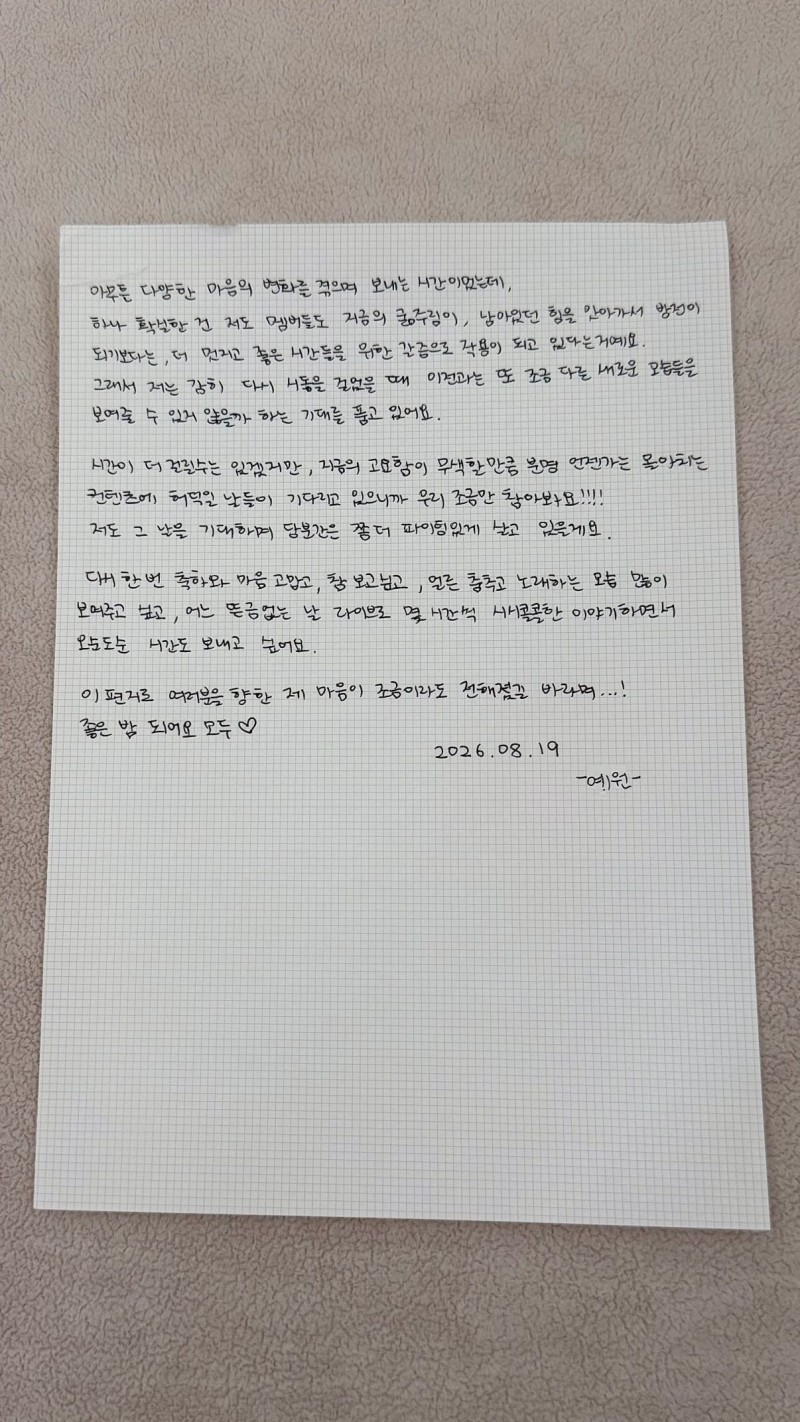 아무튼 다양한 마음의 변화를 겪으며 보내는 시간이었는데,
하나 확실한 건 저도 멤버들도 지금의 굶주림이, 남아있던 힘을 앗아가서 방전이
되기보다는, 더 멋지고 좋은 시간들을 위한 간증으로 작용이 되고 있다는거예요.
그래서 저는 감히 다시 시동을 걸었을 때 이전과는 또 조금 다른 새로운 모습들을
보여줄 수 있지 않을까 하는 기대를 품고 있어요.
시간이 더 걸릴수는 있겠지만, 지금의 고요함이 무색할만큼 분명 언젠가는 몰아치는
컨텐츠에 허덕일 날들이 기다리고 있으니까 우리 조금만 참아봐요!!!!
저도 그 날을 기대하며 당분간은 쫌 더 파이팅있게 살고 있을게요.
다시 한 번 축하와 마음 고맙고, 참 보고싶고, 얼른 춤추고 노래하는 모습 많이
보여주고 싶고, 어느 뜬금없는 날 라이브로 몇 시간씩 시시콜콜한 이야기하면서
오순도순 시간도 보내고 싶어요.
이 편지로 여러분을 향한 제 마음이 조금이라도 전해졌길 바라며...!
좋은 밤 되어요 모두♡
2026.08.19
-예원-